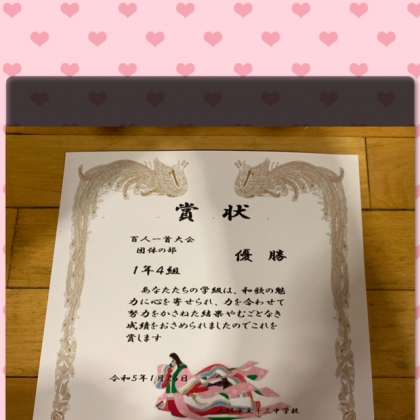 賞状
百人一首大会
団体の部
優勝
1年4組
あなたたちの学級は、和歌の魅
力に心を寄せられ、力を合わせて
努力をかさねた結果やむごとなき
成績をおさめられましたのでこれを
賞します
令和5年1月
中学校